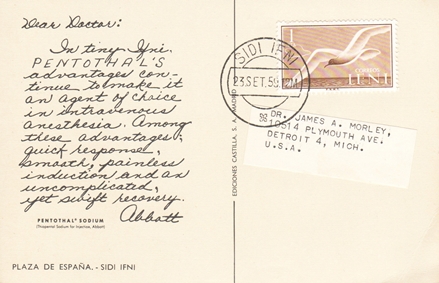 Dear Doctor:
In tiny Ifni.
PENTOTHAL'S
advantages con-
tinue to make it
an agent of choice
in intravenous
anesthesia. Among
these advantages:
quick response,
smooth, painless
induction and an
uncomplicated,
yet swift recovery.
Abbott
PENTOTHAL® SODIUM
(Thiopental Sodium for Injection, Abbott)
PLAZA DE ESPAÑA. - SIDI IFNI
EDICIONES CASTILLA, S. A. MADRID
SIDI IFNI
23.SET.59
CORREOS
IFNI
DR. JAMES A. MORLEY,
10514 PLYMOUTH AVE.
DETROIT 4, MICH.
U.S.A.